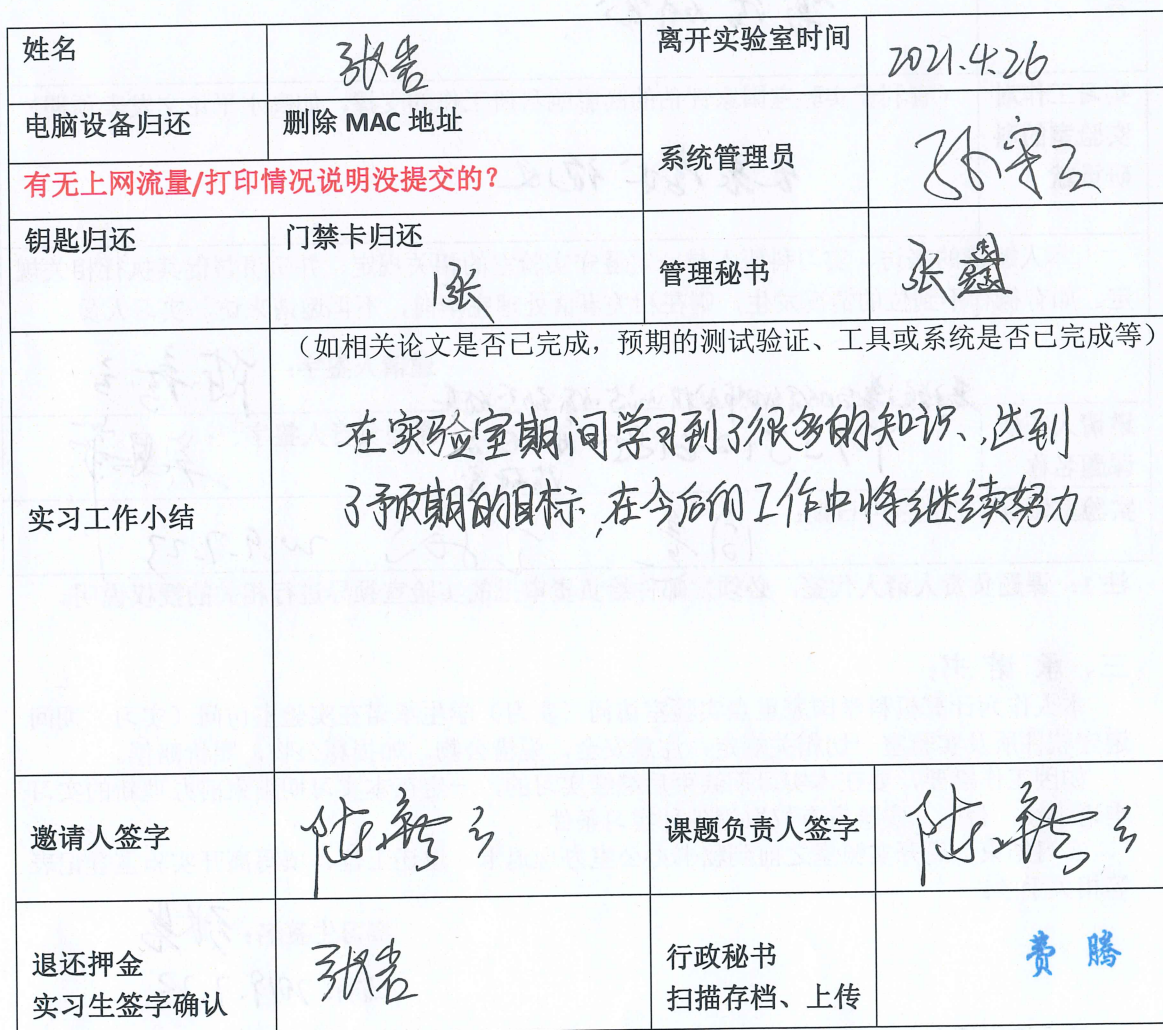 姓名 张岩 离开实验室时间 2021.4.26
电脑设备归还 删除 MAC 地址
系统管理员
有无上网流量/打印情况说明没提交的?
钥匙归还 门禁卡归还
1张
管理秘书 张鑫
实习工作小结
(如相关论文是否已完成,预期的测试验证、工具或系统是否已完成等)
在实验室期间学习到了很多的知识、达到
了预期的目标,在今后的工作中将继续努力
邀请人签字 课题负责人签字
退还押金
实习生签字确认
张岩
行政秘书
扫描存档、上传
费腾